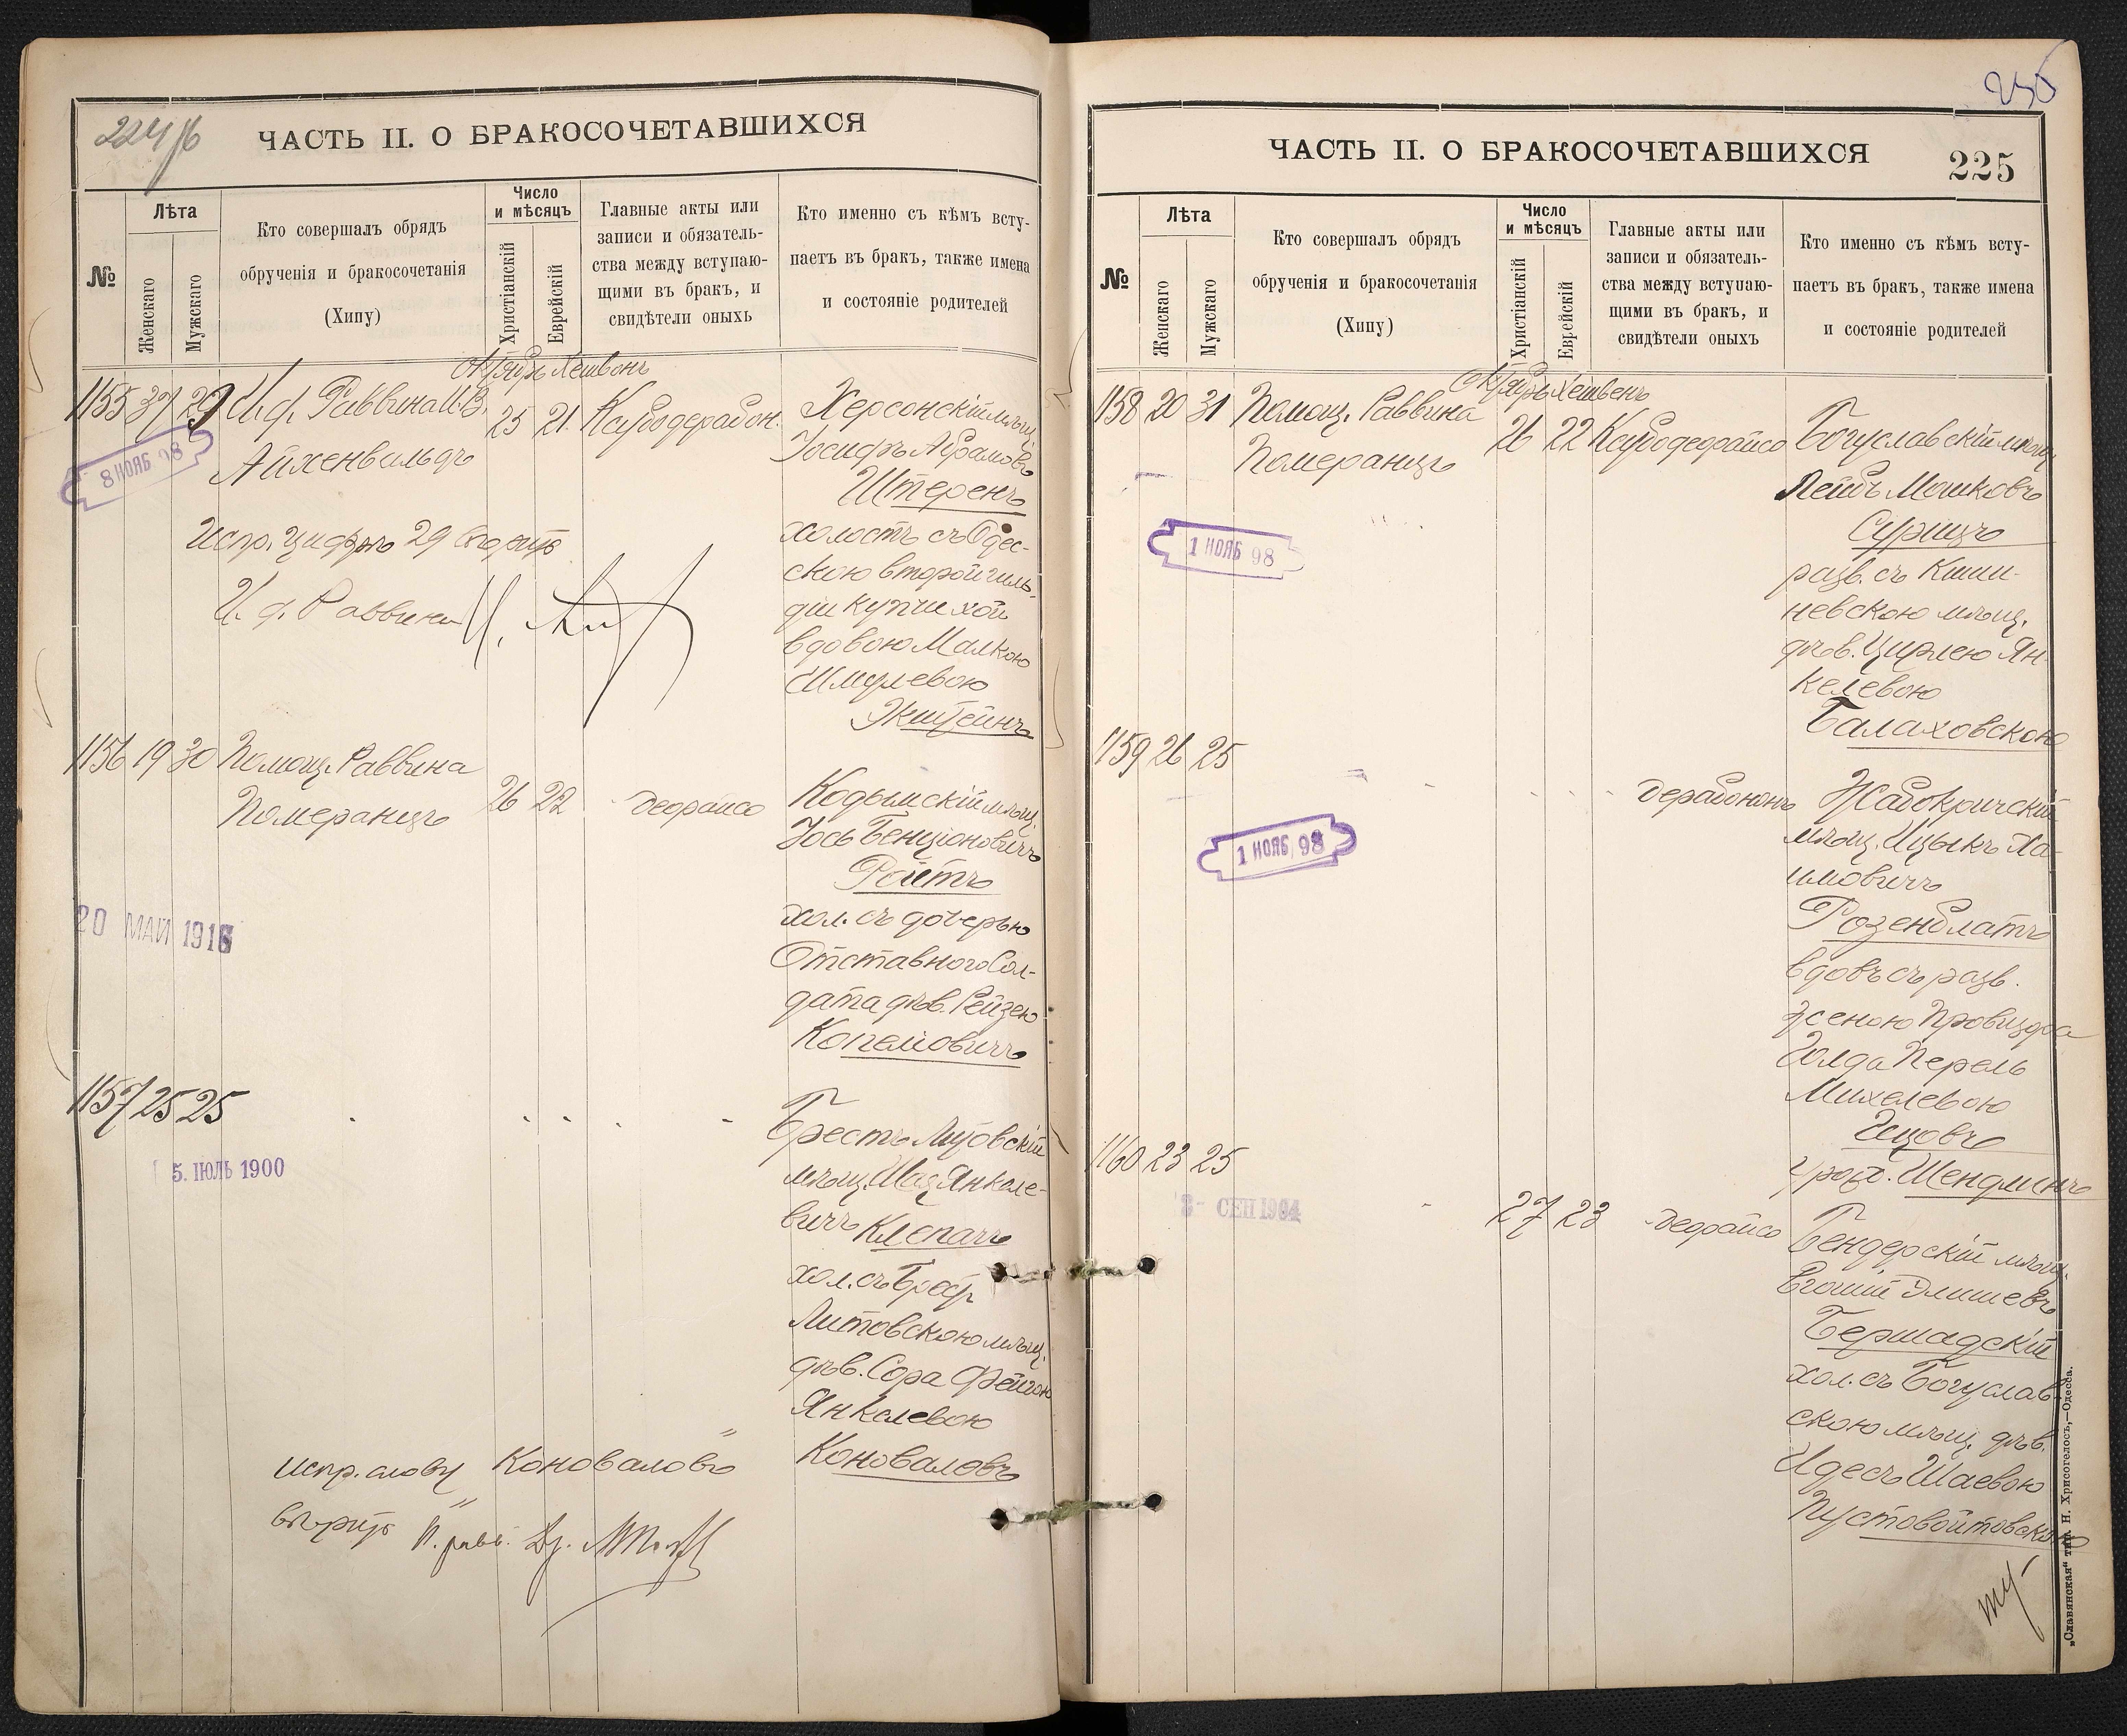 224/б
ЧАСТЬ II. О БРАКОСОЧЕТАВШИХСЯ
№
Лѣта
Женскаго
Мужскаго
Кто совершалъ обрядъ
обрученія и бракосочетанія
(Хипу)
Число
и мѣсяцъ
Христіанскій
Еврейскій
Главные акты или
записи и обязатель-
ства между вступаю-
щими въ бракъ, и
свидѣтели оныхъ
Кто именно съ кѣмъ всту-
паетъ въ бракъ, также имена
и состояніе родителей
Октябрь Хешвонъ
1155 37 29 И. ф. Раввина И. В.
Айхенвальдъ
25 21
Херсонскій мѣщ.
Іосифъ Абрамовъ
Штеренъ
холостъ съ Одес-
скою второй гиль-
діи купчихой
вдовою Малкою
Шмулевою
Экштейнъ
8 НОЯБ 98
Испр. цифръ 29 вѣрить
И. ф. Раввина
1156 19 30 Помощ. Раввина
Померанцъ
26 22
Деорайсо
Кодымскій мѣщ.
Іось Бенціоновичъ
Ройтъ
хол. съ дочерью
Отставного Сол-
дата дѣв. Рейзею
Копеліовичъ
20 МАЙ 1916
1157 25 25
Брестъ Литовскій
мѣщ. Шая Янкеле-
вичъ Клепачъ
хол. съ Брест
Литовскою мѣщ.
дѣв. Сора Фейгою
Янкелевою
Коноваловъ
5. ІЮЛЬ 1900
Испр. слову "Коноваловъ"
вѣрить П. равв. Др.
250
ЧАСТЬ II. О БРАКОСОЧЕТАВШИХСЯ
225
№
Лѣта
Женскаго
Мужскаго
Кто совершалъ обрядъ
обрученія и бракосочетанія
(Хипу)
Число
и мѣсяцъ
Христіанскій
Еврейскій
Главные акты или
записи и обязатель-
ства между вступаю-
щими въ бракъ, и
свидѣтели оныхъ
Кто именно съ кѣмъ всту-
паетъ въ бракъ, также имена
и состояніе родителей
Октябрь Хешвенъ
1158 20 31 Помощ. Раввина
Померанцъ
26 22 Ксубо деорайсо
Богуславскій мѣщ.
Лейбъ Мошковъ
Сурицъ
разв. съ Киши-
невскою мѣщ.
дѣв. Цирлею Ян-
келевою
Балаховскою
1 НОЯБ 98
1159 26 25
дерабононъ
Жабокричскій
мѣщ. Ицыкъ Ха-
имовичъ
Розенблатъ
вдовъ съ разв.
женою Провизора
Голда Перель
Михелевою
Ицовъ
урожд. Шендлинъ
1 НОЯБ 98
1160 23 25
27 23 Деорайсо
Бендерскій мѣщ.
Элишевъ
Бершадскій
хол. съ Богуслав-
скою мѣщ. дѣв.
Идесъ Шаевою
Пустовойтовскою
СЕН 1904
„Славянская“ тип. Н. Хрисогелосъ,—Одесса.